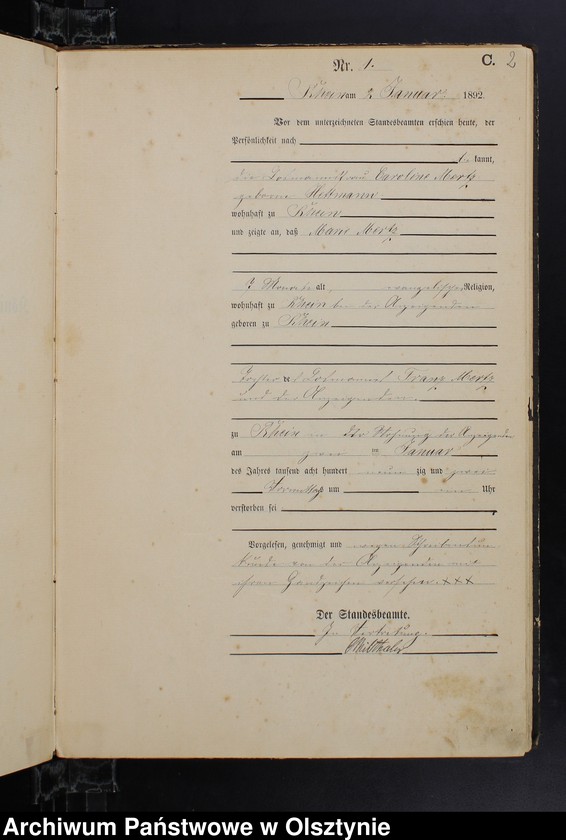 C. 2
Nr. 1.
Rhein am 2. Januar 1892
Vor dem unterzeichneten Standesbeamten erschien heute, der
Persönlichkeit nach
be kannt,
die Losmannsfrau Caroline Mertz
geborne
wohnhaft zu Rhein
und zeigte an, daß Marie Mertz
Monate alt, evangelischer Religion,
wohnhaft zu Rhein bei der Anzeigenden
geboren zu Rhein
Tochter des Losmannes Franz Mertz
und der Anzeigenden
zu Rhein in der Wohnung der Anzeigenden
am zwei ten Januar
des Jahres tausend acht hundert neun zig und zwei
Vormittags um Uhr
verstorben sei
Vorgelesen, genehmigt und wegen Schreibens un-
kunde von der Anzeigenden mit
ihrem Handzeichen versehen. +++
Der Standesbeamte.
In Vertretung.
Archiwum Państwowe w Olsztynie